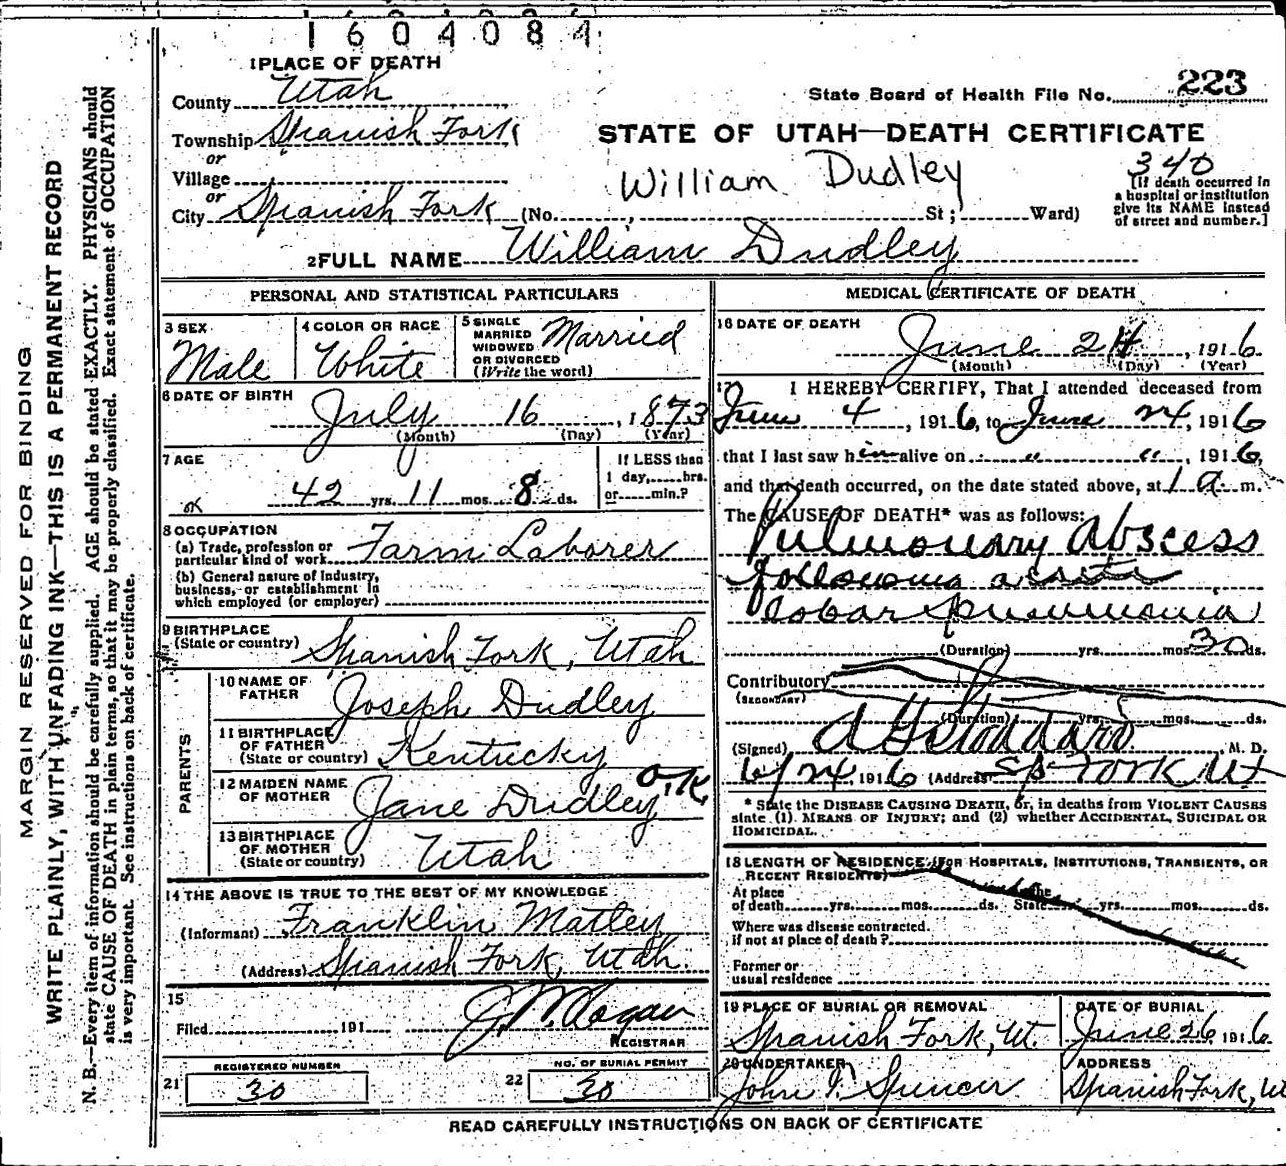 1604084
1 PLACE OF DEATH
County Utah
Township Spanish Fork
or
Village
or
City Spanish Fork (No. , St; Ward)
State Board of Health File No. 223
STATE OF UTAH—DEATH CERTIFICATE
William Dudley
340
[If death occurred in
a hospital or institution
give its NAME instead
of street and number.]
2 FULL NAME William Dudley
MARGIN RESERVED FOR BINDING
WRITE PLAINLY, WITH UNFADING INK—THIS IS A PERMANENT RECORD
N. B.—Every item of information should be carefully supplied. AGE should be stated EXACTLY. PHYSICIANS should
state CAUSE OF DEATH in plain terms, so that it may be properly classified. Exact statement of OCCUPATION
is very important. See instructions on back of certificate.
PERSONAL AND STATISTICAL PARTICULARS
3 SEX
Male
4 COLOR OR RACE
White
5 SINGLE
MARRIED
WIDOWED
OR DIVORCED
(Write the word)
Married
6 DATE OF BIRTH
July 16, 1873
(Month) (Day) (Year)
7 AGE
42 yrs. 11 mos. 8 ds.
If LESS than
1 day, hrs.
or min.?
ok
8 OCCUPATION
(a) Trade, profession or
particular kind of work Farm Laborer
(b) General nature of industry,
business, or establishment in
which employed (or employer)
9 BIRTHPLACE
(State or country) Spanish Fork, Utah
PARENTS
10 NAME OF
FATHER Joseph Dudley
11 BIRTHPLACE
OF FATHER
(State or country) Kentucky
12 MAIDEN NAME
OF MOTHER Jane Dudley O.K.
13 BIRTHPLACE
OF MOTHER
(State or country) Utah
14 THE ABOVE IS TRUE TO THE BEST OF MY KNOWLEDGE
(Informant) Franklin Matley
(Address) Spanish Fork, Utah.
15
Filed 191
REGISTRAR
21 REGISTERED NUMBER
30
22 NO. OF BURIAL PERMIT
30
MEDICAL CERTIFICATE OF DEATH
16 DATE OF DEATH
June 24, 1916
(Month) (Day) (Year)
17 I HEREBY CERTIFY, That I attended deceased from
June 4, 1916, to June 24, 1916
that I last saw him alive on " ", 1916,
and that death occurred, on the date stated above, at 1 a. m.
The CAUSE OF DEATH* was as follows:
Pulmonary Abscess
following acute
lobar pneumonia
(Duration) yrs. mos. 30 ds.
Contributory
(SECONDARY)
(Duration) yrs. mos. ds.
(Signed) A Stoddard M. D.
6/24 1916 (Address) Sp Fork Ut
* State the DISEASE CAUSING DEATH, or, in deaths from VIOLENT CAUSES
state (1) MEANS OF INJURY; and (2) whether ACCIDENTAL, SUICIDAL OR
HOMICIDAL.
18 LENGTH OF RESIDENCE (FOR HOSPITALS, INSTITUTIONS, TRANSIENTS, OR
RECENT RESIDENTS)
At place
of death yrs. mos. ds. In the State yrs. mos. ds.
Where was disease contracted.
if not at place of death?
Former or
usual residence
19 PLACE OF BURIAL OR REMOVAL
Spanish Fork, Ut.
DATE OF BURIAL
June 26 1916
20 UNDERTAKER
John Spencer
ADDRESS
Spanish Fork, Ut
READ CAREFULLY INSTRUCTIONS ON BACK OF CERTIFICATE